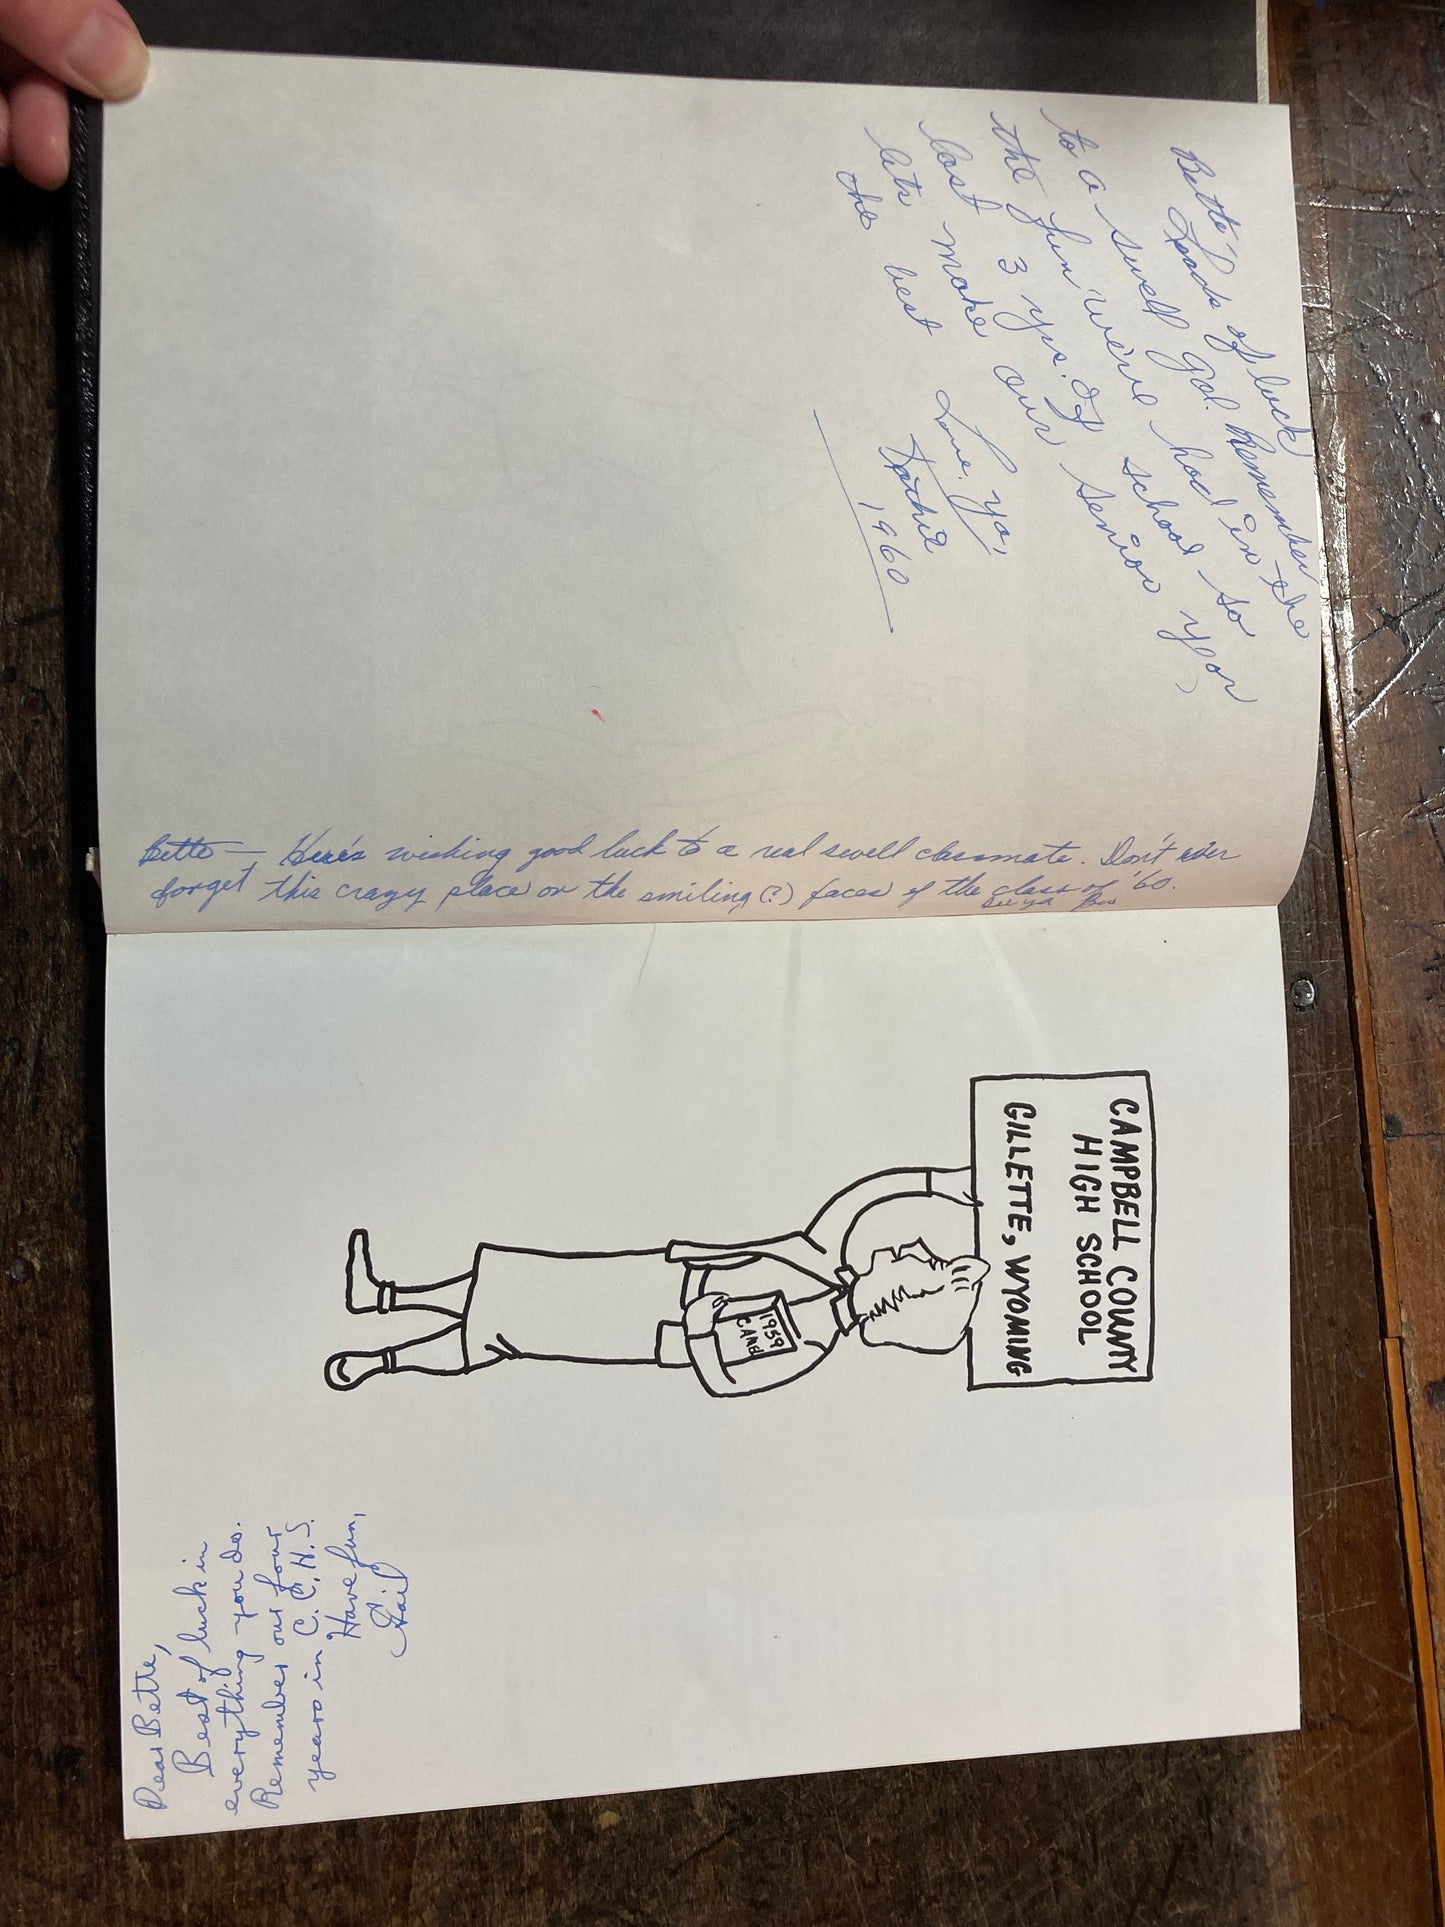 Bette,
Loads of luck
to a swell gal. Remember
the fun we've had in the
last 3 yrs. of school so
lets make our senior year
the best
Love ya,
1960
Bette — Here's wishing good luck to a real swell classmate. Don't ever
forget this crazy place or the smiling (?) faces of the class of '60.
See ya
CAMPBELL COUNTY
HIGH SCHOOL
GILLETTE, WYOMING
1959
CAMEL
Dear Bette,
Best of luck in
everything you do.
Remember our four
years in C.C.H.S.
Have fun,
Gail